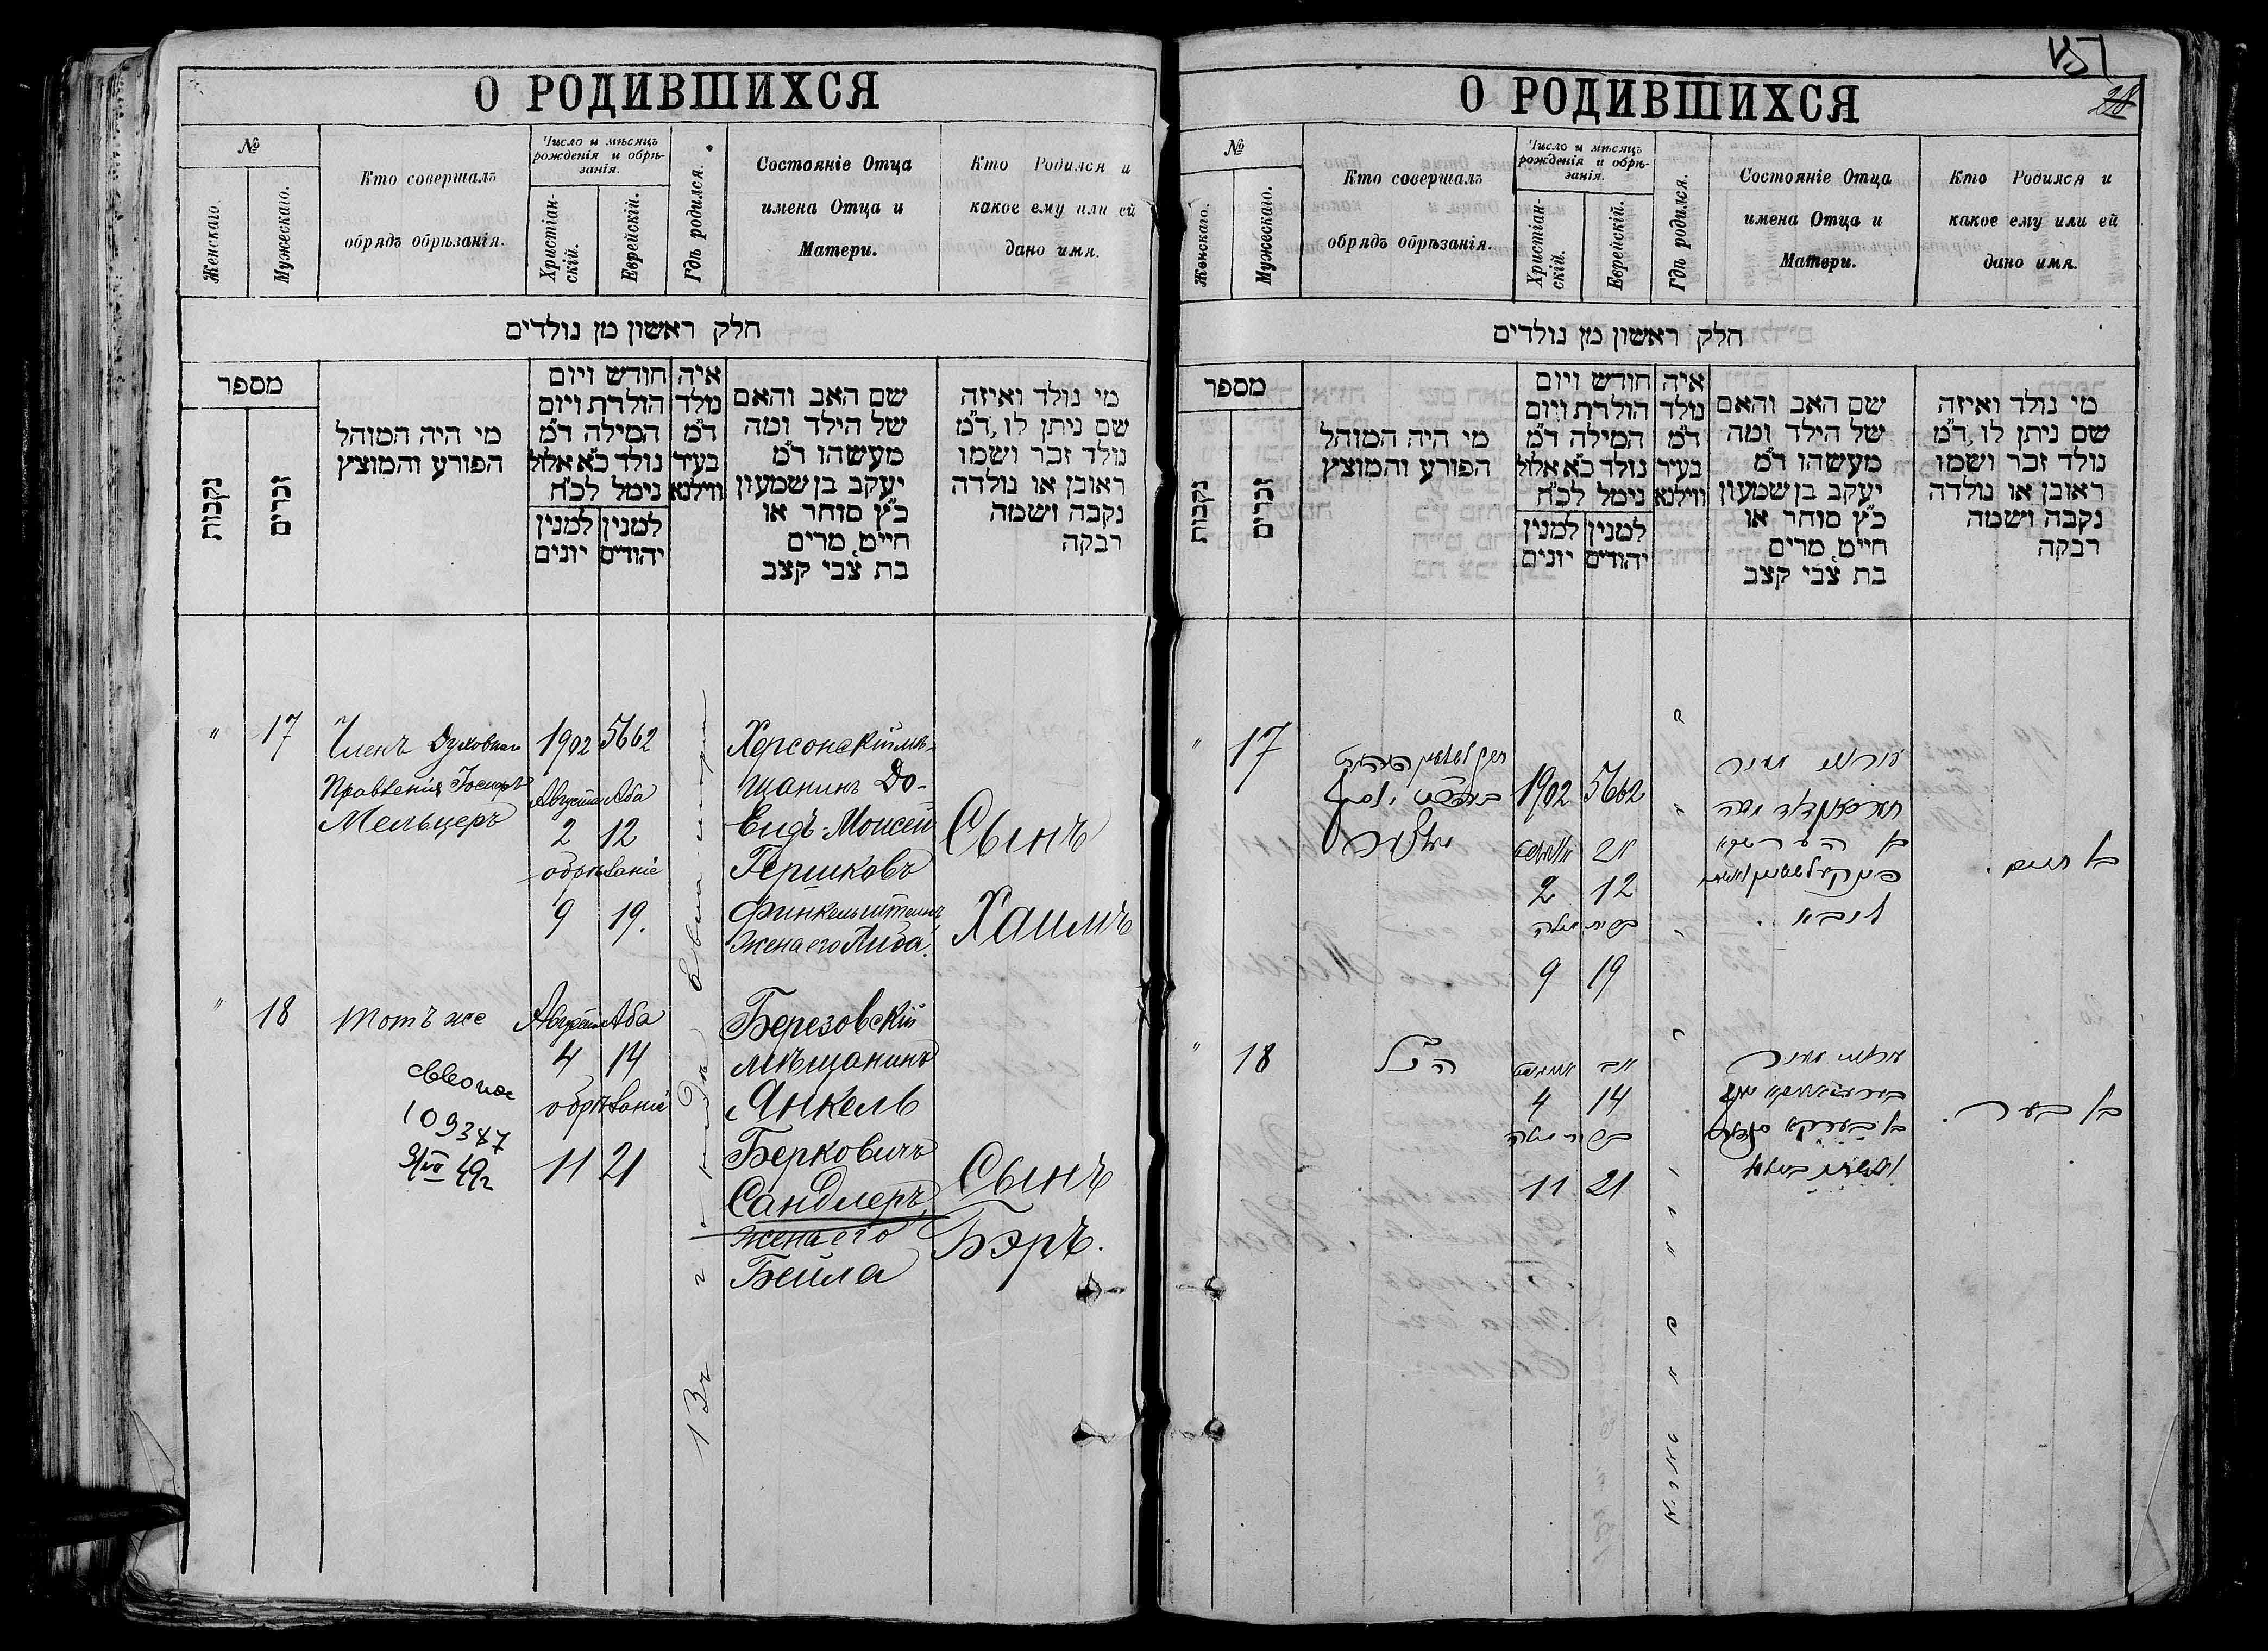 О РОДИВШИХСЯ
№
Женскаго.
Мужескаго.
Кто совершалъ
обрядъ обрѣзанія.
Число и мѣсяцъ
рожденія и обрѣ-
занія.
Христіан-
скій.
Еврейскій.
Гдѣ родился.
Состояніе Отца
имена Отца и
Матери.
Кто Родился и
какое ему или ей
дано имя.
חלק ראשון מן נולדים
מספר
נקבות
זכרים
מי היה המוהל
הפורע והמוצץ
חודש ויום
הולדת ויום
המילה ד"מ
נולד כ"א אלול
נימל לכ"ח
למנין יהודים
למנין יונים
איה
נולד
ד"מ
בעיר
ווילנא
שם האב והאם
של הילד ומה
מעשהו ד"מ
יעקב בן שמעון
כ"ץ סוחר או
חייט, מרים
בת צבי קצב
מי נולד ואיזה
שם ניתן לו, ד"מ
נולד זכר ושמו
ראובן או נולדה
נקבה ושמה
רבקה
" 17
Членъ Духовнаго
Правленія Іосифъ
Мельцеръ
1902 5662
Августа Аба
2 12
обрѣзаніе
9 19.
Херсонскій мѣ-
щанинъ До-
видъ-Мойсей
Гершковъ
Финкельштейнъ
жена его Либа.
Сынъ
Хаимъ
" 18
Тотъ же
Августа Аба
4 14
обрѣзаніе
11 21
Березовскій
мѣщанинъ
Янкель
Берковичъ
Сандлеръ,
жена его
Бейла
Сынъ
Бэръ.
109387
49г
О РОДИВШИХСЯ
28
№
Женскаго.
Мужескаго.
Кто совершалъ
обрядъ обрѣзанія.
Число и мѣсяцъ
рожденія и обрѣ-
занія.
Христіан-
скій.
Еврейскій.
Гдѣ родился.
Состояніе Отца
имена Отца и
Матери.
Кто Родился и
какое ему или ей
дано имя.
חלק ראשון מן נולדים
מספר
נקבות
זכרים
מי היה המוהל
הפורע והמוצץ
חודש ויום
הולדת ויום
המילה ד"מ
נולד כ"א אלול
נימל לכ"ח
למנין יהודים
למנין יונים
איה
נולד
ד"מ
בעיר
ווילנא
שם האב והאם
של הילד ומה
מעשהו ד"מ
יעקב בן שמעון
כ"ץ סוחר או
חייט, מרים
בת צבי קצב
מי נולד ואיזה
שם ניתן לו, ד"מ
נולד זכר ושמו
ראובן או נולדה
נקבה ושמה
רבקה
" 17
מעלצער
1902 5662
אויגוסט אב
2 12
ברית מילה
9 19
דוד משה
ב הערשקא
פינקעלשטיין
ליבא.
ב חיים.
" 18
הנ"ל
אויגוסט אב
4 14
ברית מילה
11 21
ב בערקא
ביילא
ב בער.